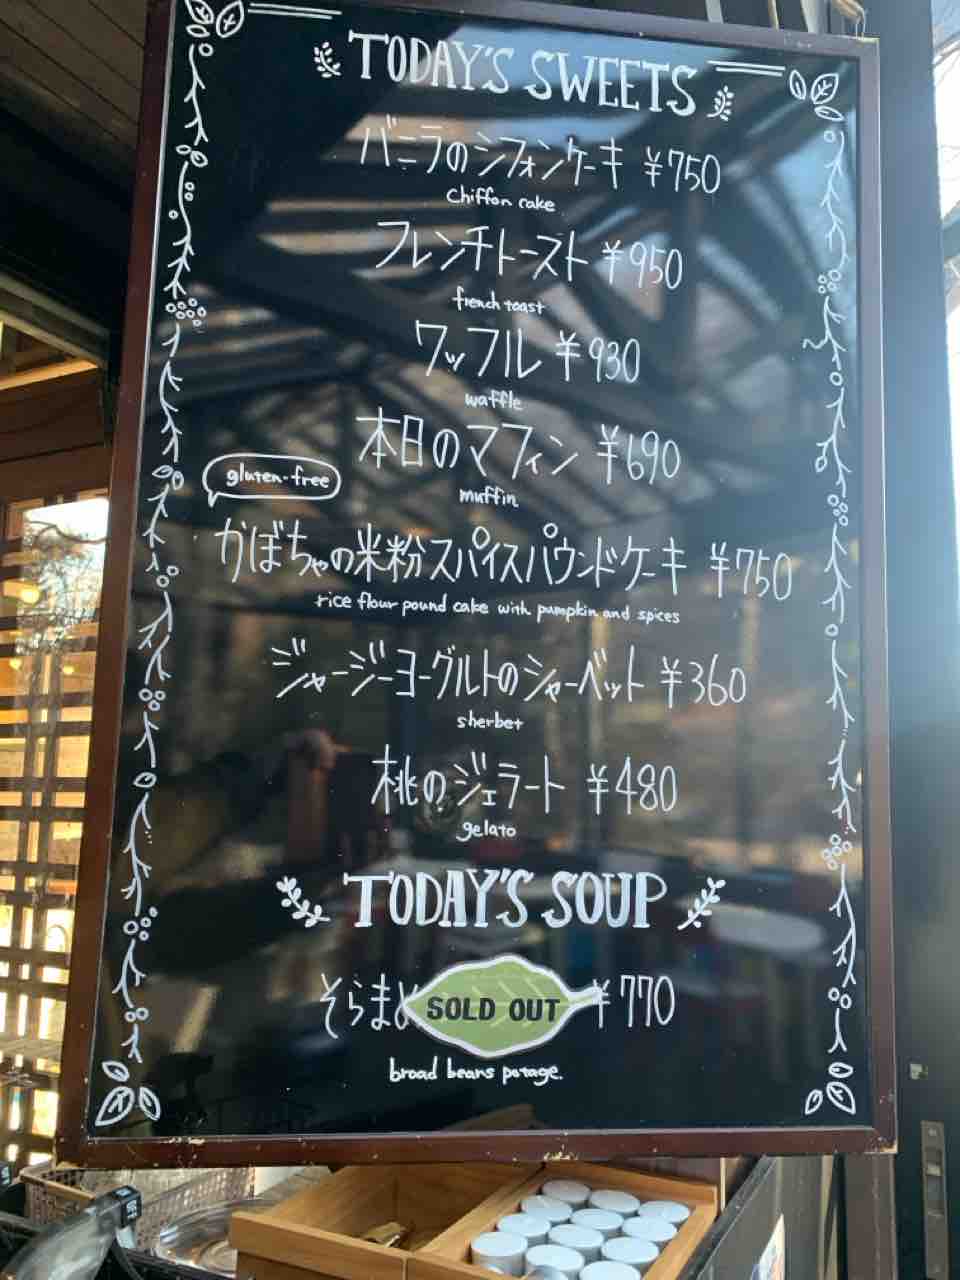 TODAY'S SWEETS
バニラのシフォンケーキ ¥750
chiffon cake
フレンチトースト ¥950
french toast
ワッフル ¥930
waffle
本日のマフィン ¥690
muffin
gluten-free
かぼちゃの米粉スパイスパウンドケーキ ¥750
rice flour pound cake with pumpkin and spices
ジャージーヨーグルトのシャーベット ¥360
sherbet
桃のジェラート ¥480
gelato
TODAY'S SOUP
そらまめ SOLD OUT ¥770
broad beans potage.